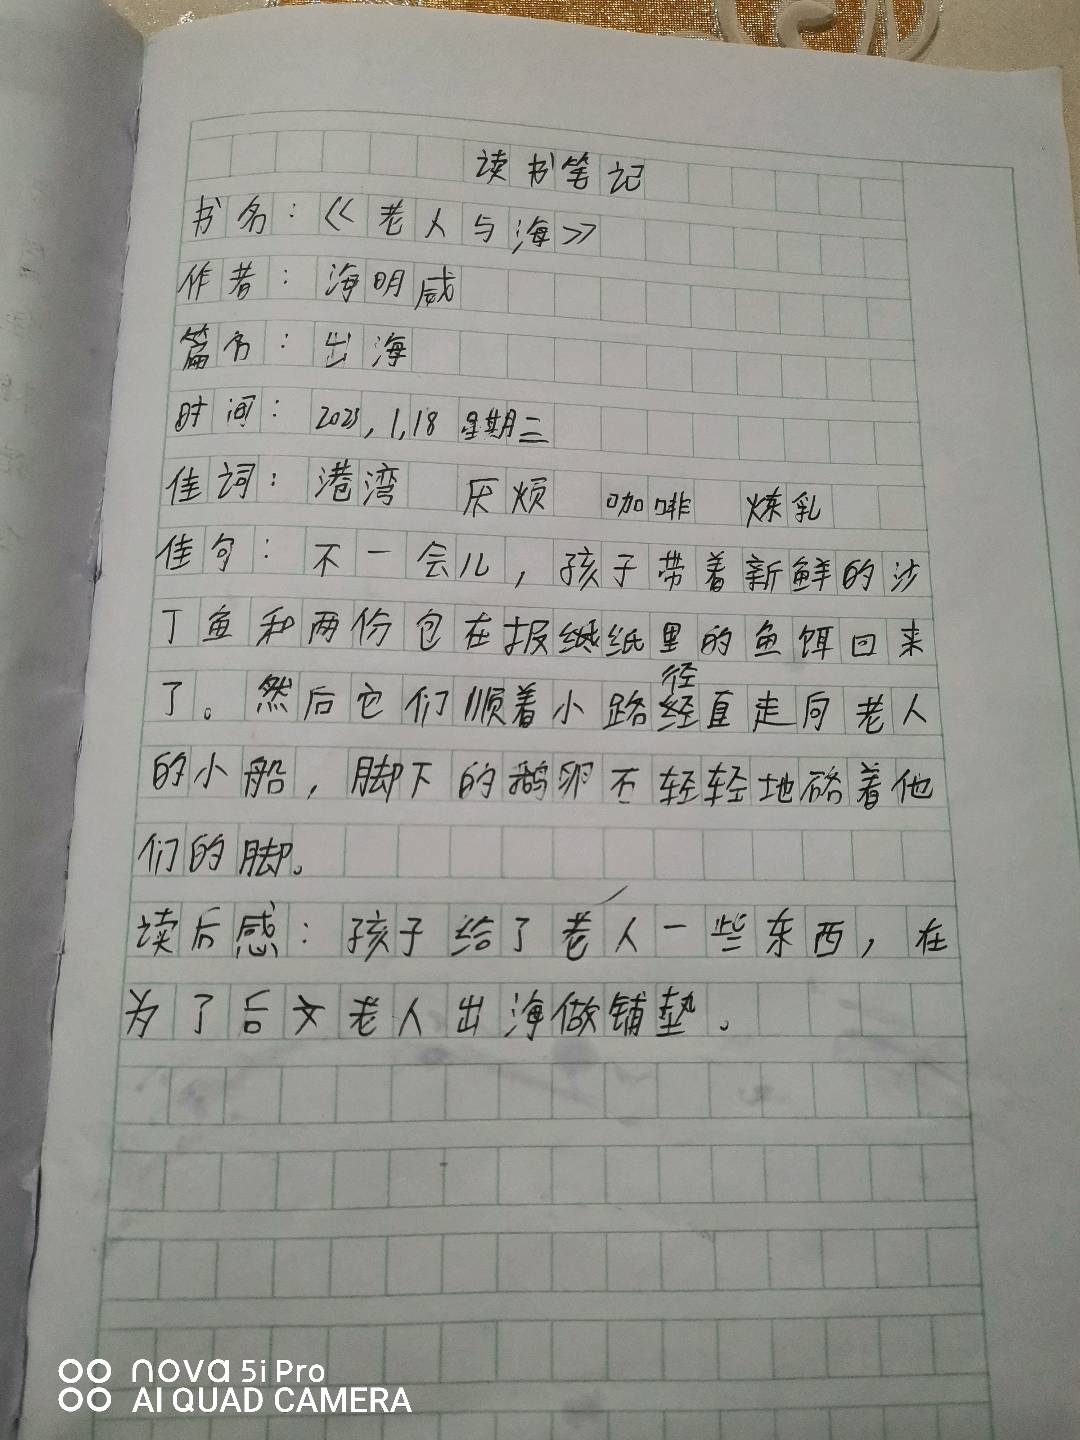 读书笔记
书名：《老人与海》
作者：海明威
篇名：出海
时间：2023，1，18 星期三
佳词：港湾 厌烦 咖啡 炼乳
佳句：不一会儿，孩子带着新鲜的沙
丁鱼和两份包在报纸里的鱼饵回来
径
了。然后它们顺着小路经直走向老人
的小船，脚下的鹅卵石轻轻地硌着他
们的脚。
读后感：孩子给了老人一些东西，在
为了后文老人出海做铺垫。
nova 5i Pro
AI QUAD CAMERA